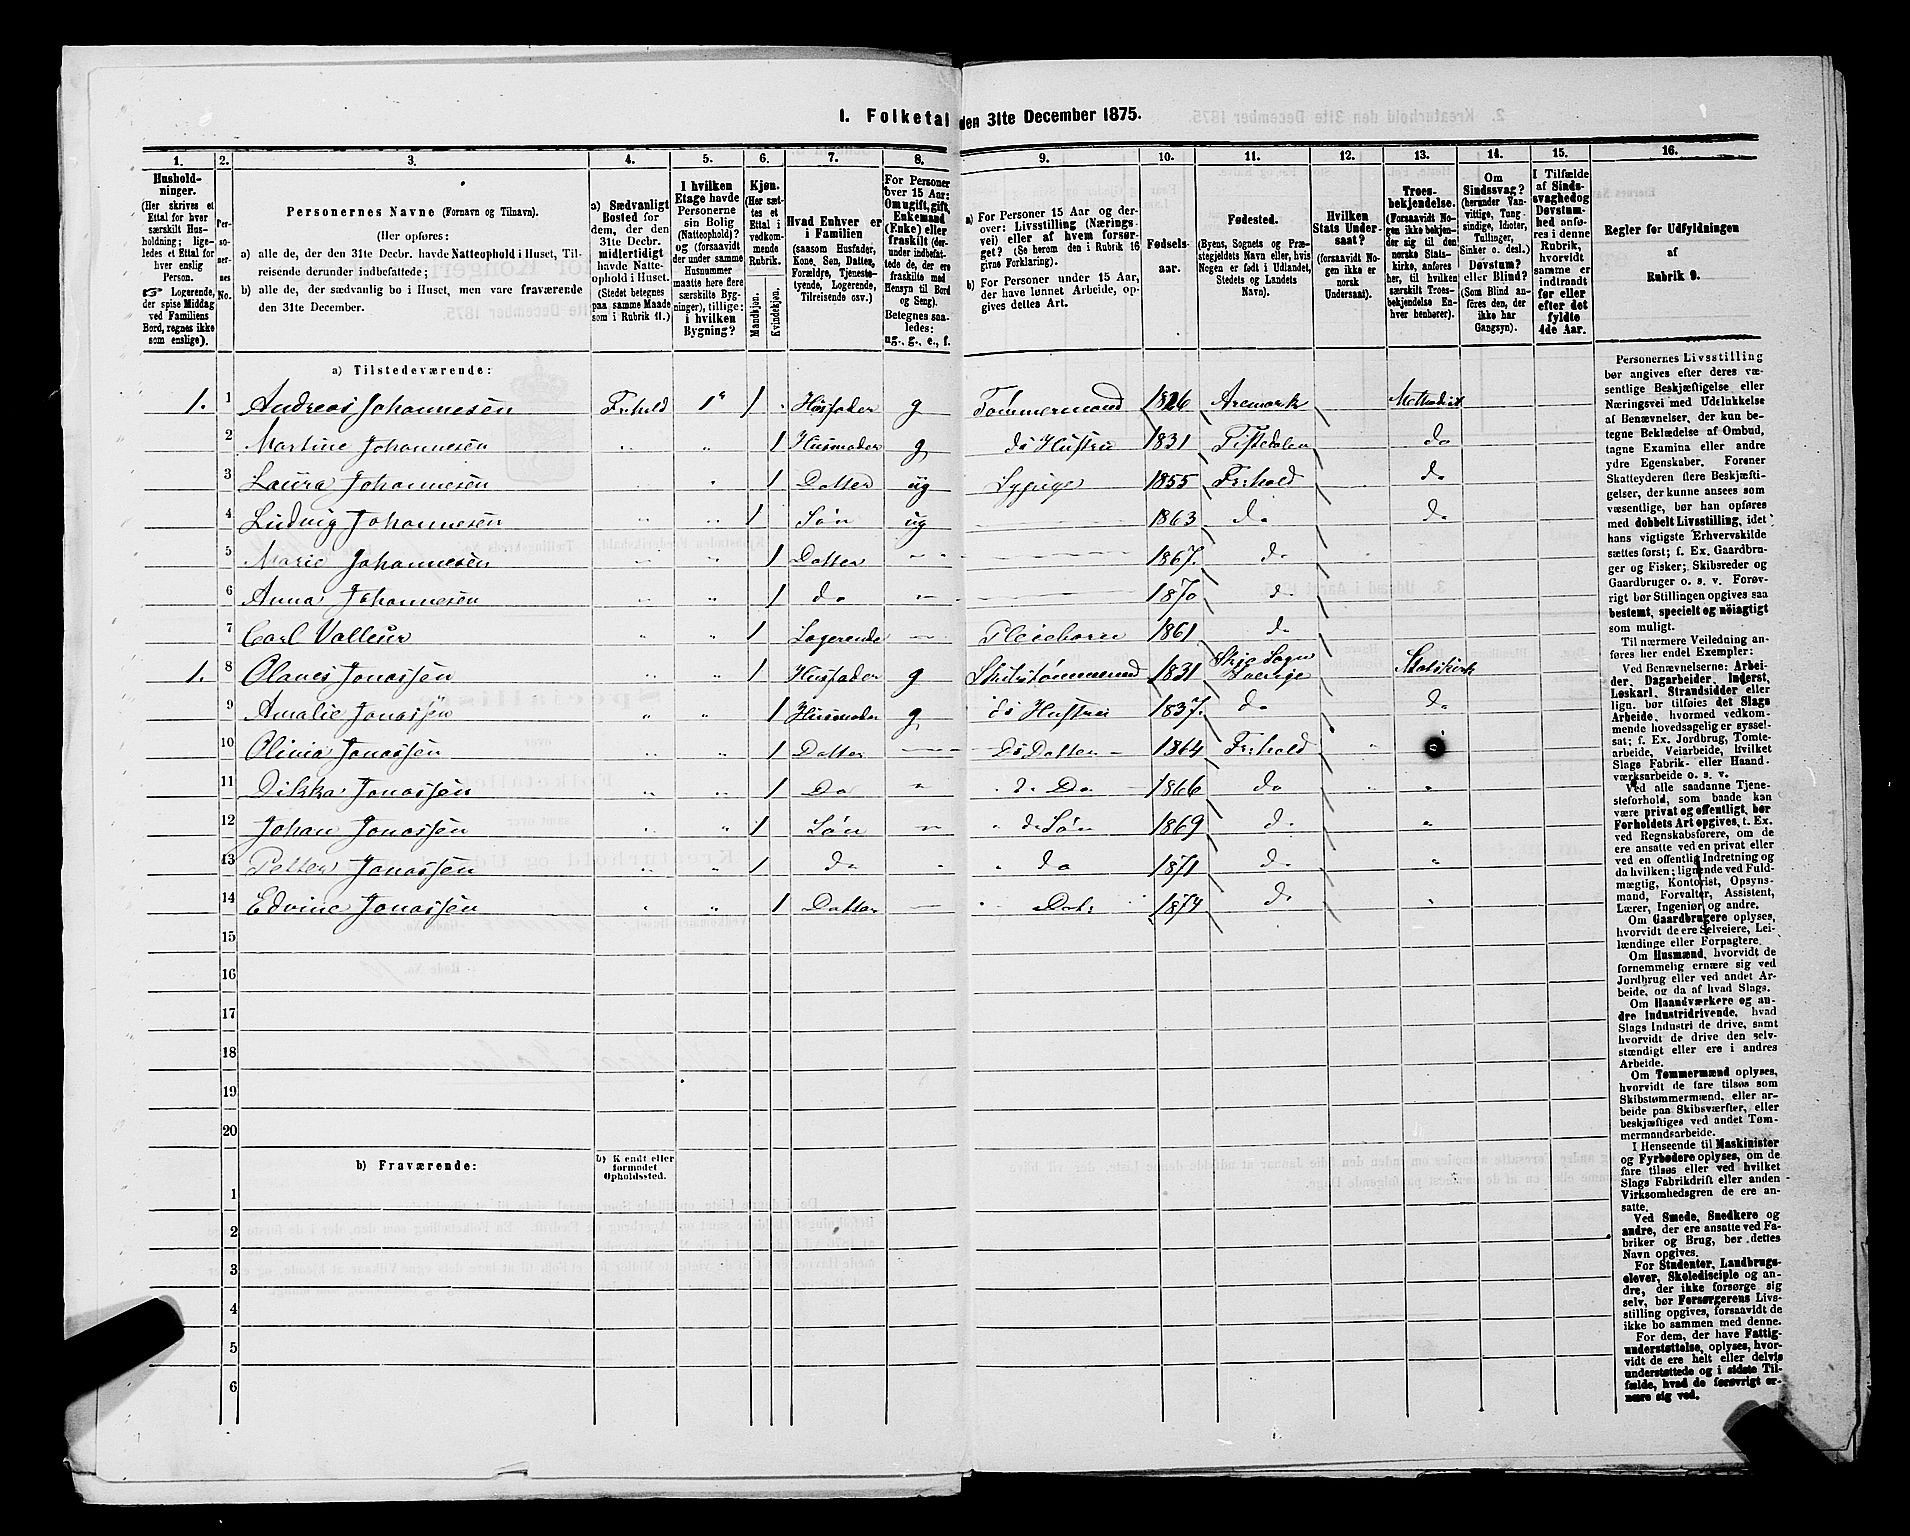 1. Folketal den 31te December 1875.
1. 2. 3. 4. 5. 6. 7. 8. 9. 10. 11. 12. 13. 14. 15. 16.
Hushold-
ninger.
(Her skrives et
Ettal for hver
særskilt Hus-
holdning; lige-
ledes et Ettal for
hver enslig
Person.
☞ Logerende,
der spise Middag
ved Familiens
Bord, regnes ikke
som enslige).
Per-
so-
ner-
nes
No.
Personernes Navne (Fornavn og Tilnavn).
(Her opføres:
a) alle de, der den 31te Decbr. havde Natteophold i Huset, Til-
reisende derunder indbefattede;
b) alle de, der sædvanlig bo i Huset, men vare fraværende
den 31te December.
a) Sædvanligt
Bosted for
dem, der den
31te Decbr.
midlertidigt
havde Natte-
ophold i Huset.
(Stedet betegnes
paa samme Maade
som i Rubrik 11.)
I hvilken
Etage havde
Personerne
sin Bolig
(Natteophold)?
og (forsaavidt
der under samme
Husnummer
maatte høre flere
særskilte Byg-
ninger), tillige:
i hvilken
Bygning?
Kjøn.
(Her sæt-
tes et
Ettal i
vedkom-
mende
Rubrik.
Mandkjøn.
Kvindekjøn.
Hvad Enhver er
i Familien
(saasom Husfader,
Kone, Søn, Datter,
Forældre, Tjeneste-
tyende, Logerende,
Tilreisende osv.)
For Personer
over 15 Aar:
Om ugift, gift,
Enkemand
(Enke) eller
fraskilt (der-
under indbefat-
tede de, der ere
fraskilte med
Hensyn til Bord
og Seng).
Betegnes saa-
ledes:
ug., g., e., f.
a) For Personer 15 Aar og der-
over: Livsstilling (Nærings-
vei) eller af hvem forsør-
get? (Se herom den i Rubrik 16
givne Forklaring).
b) For Personer under 15 Aar,
der have lønnet Arbeide, op-
gives dettes Art.
Fødsels-
aar.
Fødested.
(Byens, Sognets og Præ-
stegjeldets Navn eller, hvis
Nogen er født i Udlandet,
Stedets og Landets
Navn).
Hvilken
Stats Under-
saat?
(forsaavidt No-
gen ikke er
norsk
Undersaat).
Troes-
bekjendelse.
(Forsaavidt No-
gen ikke bekjen-
der sig til den
norske Stats-
kirke, anføres
her, til hvilken
særskilt Troes-
bekjendelse En-
hver henhører).
Om
Sindssvag?
(herunder Van-
vittige, Tung-
sindige, Idioter,
Tullinger,
Sinker o. desl.)
Døvstum?
eller Blind?
(Som Blind an-
føres den, der
ikke har
Gangsyn).
I Tilfælde
af Sinds-
svaghed og
Døvstum-
hed anfø-
res i denne
Rubrik,
hvorvidt
samme er
indtraadt
før eller
efter det
fyldte
4de Aar.
Regler for Udfyldningen
af
Rubrik 9.
a) Tilstedeværende:
1. 1 Andreas Johannesen Frhold 1ª 1 Husfader g Tømmermand 1826 Aremark Methodist
2 Martine Johannesen " " 1 Husmoder g ds Hustru 1831 Tistedalen do
3 Laura Johannesen " 1 Datter ug Sypige 1855 Frhold do
4 Ludvig Johannesen " " 1 Søn ug 1863 do do
5 Marie Johannesen " " 1 Datter 1867. do
6 Anna Johannesen " " 1 do 1870 do
7 Carl " " 1 Logerende 1861 do
1. 8 Olaves Jonassen " " 1 Husfader g Skibstømmermand 1831 Sogn Sverige Statskirk
9 Amalie Jonassen " " 1 Husmoder g ds Hustru 1837. do do
10 Olinia Jonassen " " 1 Datter Ds Datter 1864 Frhold "
11 Dikka Jonassen " " 1 Do d. Do 1866 do " "
12 Johan Jonassen " " 1 Søn " d. Søn 1869 do "
13 Petter Jonassen " " 1 do " do 1871 do "
14 Edvine Jonassen " " 1 Datter " Datr 1874 do "
15
16
17
18
19
20
b) Fraværende:
b) Kjendt eller
formodet
Opholdssted.
1
2
3
4
5
6
Personernes Livsstilling
bør angives efter deres væ-
sentlige Beskjæftigelse eller
Næringsvei med Udelukkelse
af Benævnelser, der kun be-
tegne Beklædelse af Ombud,
tagne Examina eller andre
ydre Egenskaber. Forener
Skatteyderen flere Beskjæfti-
gelser, der kunne ansees som
væsentlige, bør han opføres
med dobbelt Livsstilling, idet
hans vigtigste Erhvervskilde
sættes først; f. Ex. Gaardbru-
ger og Fisker; Skibsreder og
Gaardbruger o. s. v. Forøv-
rigt bør Stillingen opgives saa
bestemt, specielt og nøiagtigt
som muligt.
Til nærmere Veiledning an-
føres her endel Exempler:
Ved Benævnelserne: Arbei-
der, Dagarbeider, Inderst,
Løskarl, Strandsidder eller
lign. bør tilføies det Slags
Arbeide, hvormed vedkom-
mende hovedsagelig er syssel-
sat; f. Ex. Jordbrug, Tomte-
arbeide, Veiarbeide, hvilket
Slags Fabrik- eller Haand-
værksarbeide o. s. v.
Ved alle saadanne Tjene-
steforhold, som baade kan
være privat og offentligt, bør
Forholdets Art opgives, t. Ex.
ved Regnskabsførere, om de
ere ansatte ved en privat eller
ved en offentlig Indretning og
da hvilken; lignende ved Fuld-
mægtig, Kontorist, Opsyns-
mand, Forvalter, Assistent,
Lærer, Ingeniør og andre.
Om Gaardbrugere oplyses,
hvorvidt de ere Selveiere, Lei-
lændinge eller Forpagtere.
Om Husmænd, hvorvidt de
fornemmelig ernære sig ved
Jordbrug eller ved andet Ar-
beide, og da af hvad Slags.
Om Haandværkere og an-
dre Industridrivende, hvad
Slags Industri de drive, samt
hvorvidt de drive den selv-
stændigt eller ere i andres
Arbeide.
Om Tømmermænd oplyses,
hvorvidt de fare tilsøs som
Skibstømmermænd, eller ar-
beide paa Skibsværfter, eller
beskjæftiges ved andet Tøm-
mermandsarbeide.
I Henseende til Maskinister
og Fyrbødere oplyses, om de
fare tilsøs eller ved hvilket
Slags Fabrikdrift eller anden
Virksomhedsgren de ere an-
satte.
Ved Smede, Snedkere og
andre, der ere ansatte ved Fa-
briker og Brug, bør dettes
Navn opgives.
For Studenter, Landbrugs-
elever, Skoledisciple og an-
dre, der ikke forsørge sig
selv, bør Forsørgerens Livs-
stilling opgives, forsaavidt de
ikke bo sammen med denne.
For dem, der have Fattig-
understøttelse, oplyses, hvor-
vidt de ere helt eller delvis
understøttede og i sidste Til-
fælde, hvad de forøvrigt er-
nære sig ved.